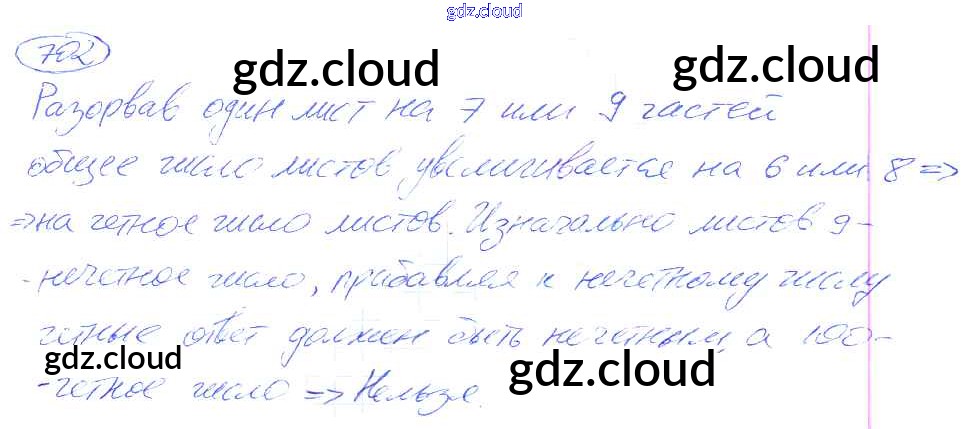 gdz.cloud
702
gdz.cloud gdz.cloud
Разорвав один лист на 7 или 9 частей
общее число листов увеличивается на 6 или 8 =>
=> на четное число листов. Изначально листов 9 -
- нечетное число, прибавляя к нечетному числу
четные ответ должен быть нечетным, а 100 -
gdz.cloud gdz.cloud
- четное число => Нельзя.